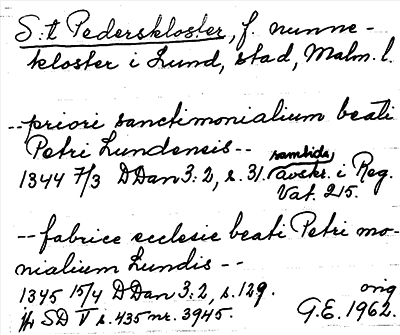 S:t Pederskloster, f. nunne-
kloster i Lund, stad, Malm. l.
--priori sanctimonialium beati
Petri Lundensis--
samtida
1344 7/3 DDan 3:2, s. 31. avskr. i Reg.
Vat. 215.
--fabrice ecclesie beati Petri mo-
nialium Lundis--
1345 15/4 DDan 3:2, s. 129. orig
jfr SD V s. 435 nr. 3945. G.E. 1962.